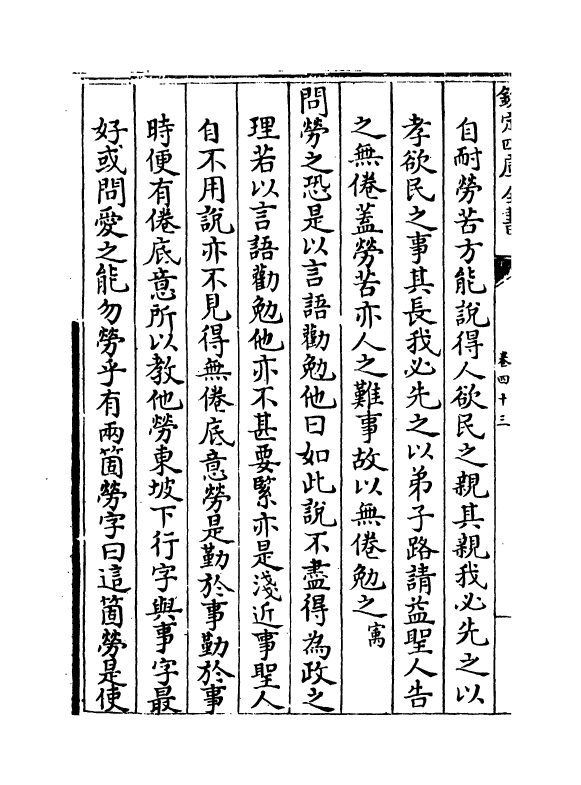 欽定四庫全書
卷四十三
自耐勞苦方能說得人欲民之親其親我必先之以
孝欲民之事其長我必先之以弟子路請益聖人告
之無倦蓋勞苦亦人之難事故以無倦勉之寓
問勞之恐是以言語勸勉他曰如此說不盡得為政之
理若以言語勸勉他亦不甚要緊亦是淺近事聖人
自不用說亦不見得無倦底意勞是勤於事勤於事
時便有倦底意所以教他勞東坡下行字與事字最
好或問愛之能勿勞乎有兩箇勞字曰這箇勞是使